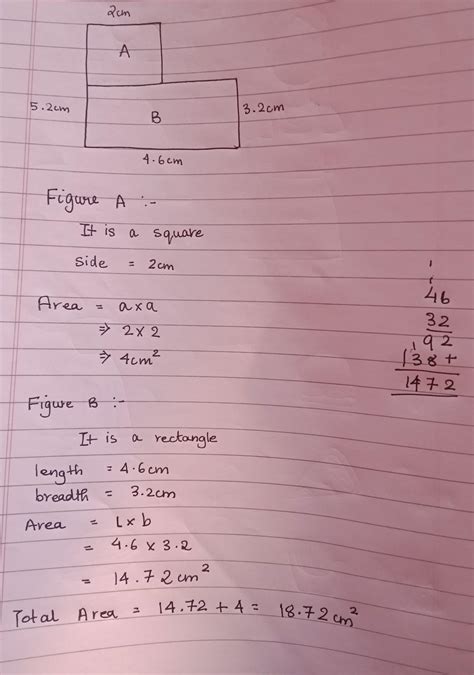 2cm
A
5.2cm
B
3.2cm
4.6cm
Figure A :-
It is a square
side = 2cm
Area = a×a
⇒ 2×2
⇒ 4cm²
1
1
46
32
1 92
138+
1472
Figure B :-
It is a rectangle
length = 4.6cm
breadth = 3.2cm
Area = l×b
= 4.6 × 3.2
= 14.72 cm²
Total Area = 14.72 + 4 = 18.72cm²